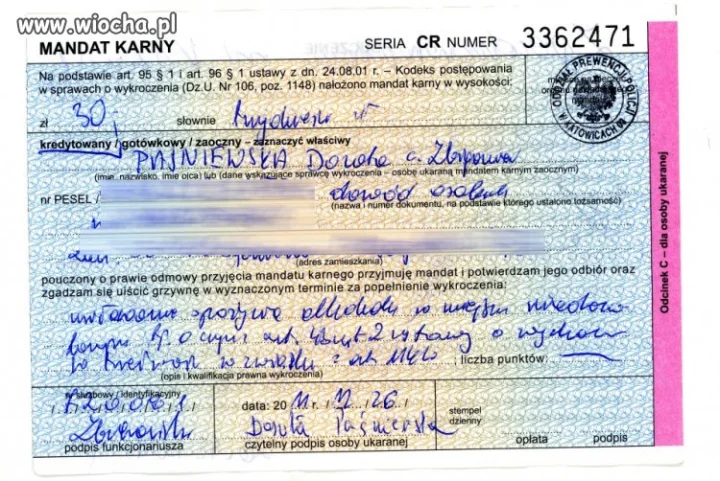 www.wiocha.pl
MANDAT KARNY SERIA CR NUMER 3362471
Na podstawie art. 95 § 1 i art. 96 § 1 ustawy z dn. 24.08.01 r. – Kodeks postępowania
w sprawach o wykroczenia (Dz.U. Nr 106, poz. 1148) nałożono mandat karny w wysokości:
zł 30,- słownie trzydzieści zł
kredytowany / gotówkowy / zaoczny – zaznaczyć właściwy
Dorota c. Zbigniewa
(imię, nazwisko, imię ojca) lub (dane wskazujące sprawcę wykroczenia – osobę ukaraną mandatem karnym zaocznym)
nr PESEL / dowód osobisty
(nazwa i numer dokumentu, na podstawie którego ustalono tożsamość)
(adres zamieszkania)
pouczony o prawie odmowy przyjęcia mandatu karnego przyjmuję mandat i potwierdzam jego odbiór oraz
zgadzam się uiścić grzywnę w wyznaczonym terminie za popełnienie wykroczenia:
alkoholu w miejscu
o czyn z art. 43 ust 2 ustawy o wychow
w trzeźwości w związku z art ; liczba punktów: —
(opis i kwalifikacja prawna wykroczenia)
nr służbowy / identyfikacyjny
data: 20 11 r. / 12 / 26
podpis funkcjonariusza
Dorota
czytelny podpis osoby ukaranej
stempel
dzienny
opłata podpis
Odcinek C – dla osoby ukaranej
PREWENCJI POLICJI
W KATOWICACH